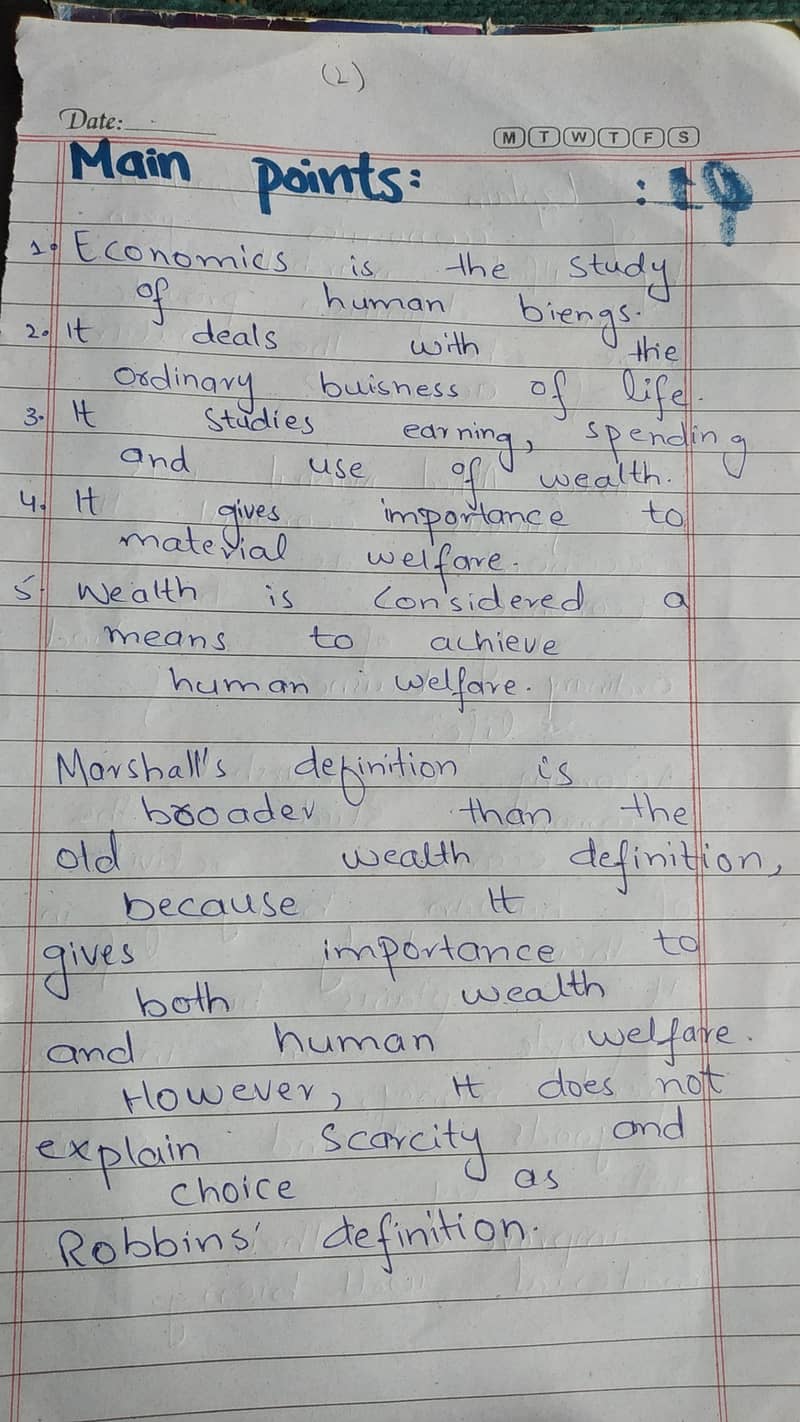 (2)
Date:
M T W T F S
Main points:
1. Economics is the study
of human biengs.
2. It deals with the
ordinary buisness of life.
3. It studies earning, spending
and use of wealth.
4. It gives importance to
material welfare.
5 Wealth is considered a
means to achieve
human welfare.
Marshall's definition is
broader than the
old wealth definition,
because It
gives importance to
both wealth
and human welfare.
However, It does not
explain Scarcity and
choice as
Robbins' definition.